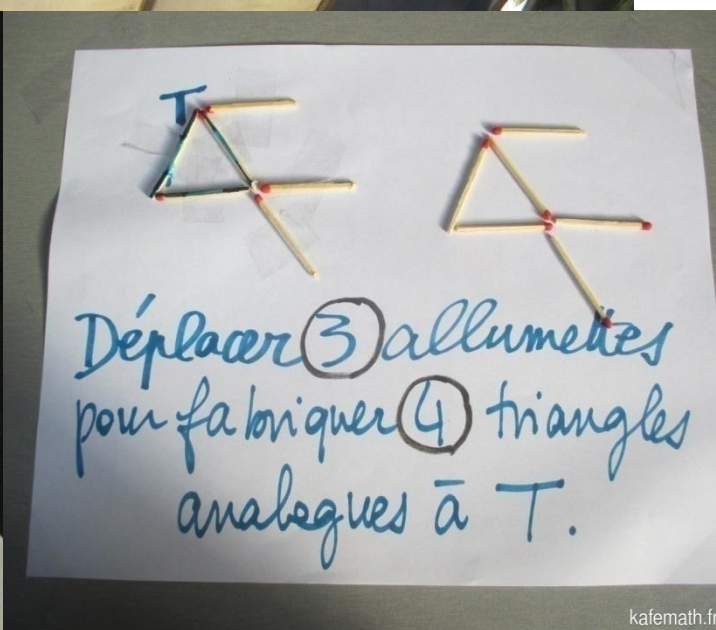 T
Déplacer 3 allumettes
pour fabriquer 4 triangles
analogues à T.
kafemath.fr